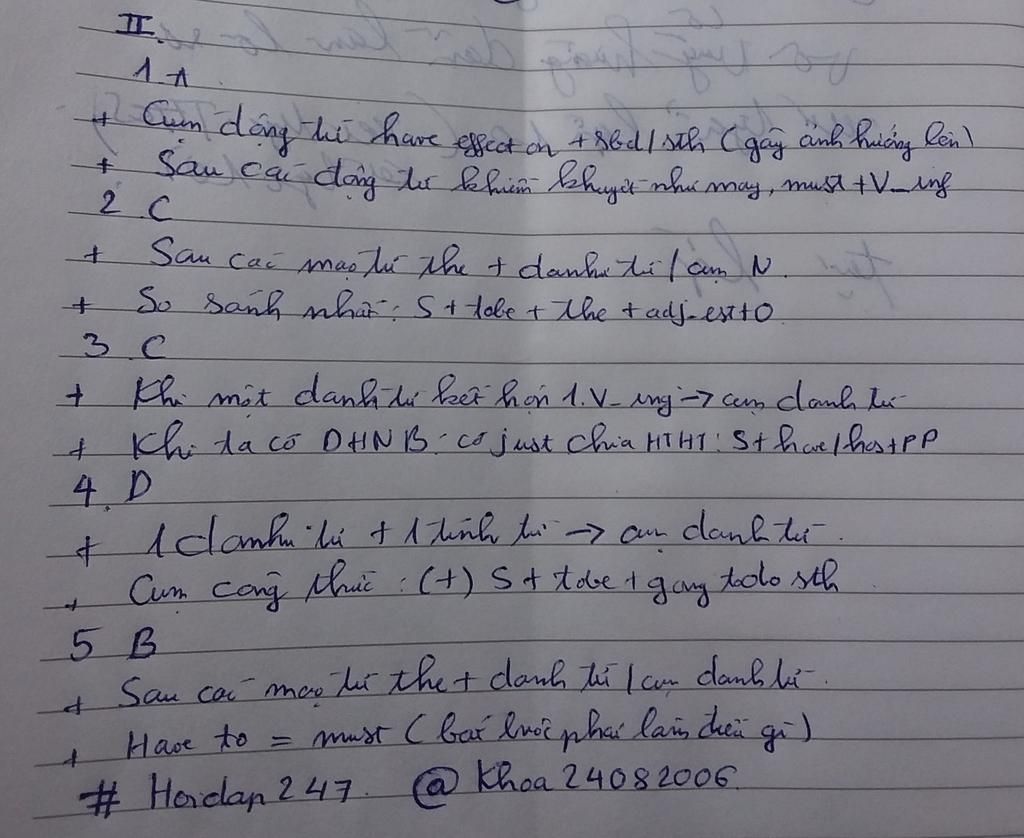 II.
1 A
+ Cụm động từ have effect on + sbd/sth (gây ảnh hưởng lên)
+ Sau các động từ khiếm khuyết như may, must + V_ing
2 C
+ Sau các mạo từ the + danh từ / cụm N.
+ So sánh nhất: S + tobe + the + adj-est + O
3 C
+ Khi một danh từ kết hợp 1 V_ing → cụm danh từ
+ Khi ta có DHNB: có just chia HTHT: S + have/has + PP
4. D
+ 1 danh từ + 1 tính từ → cụm danh từ.
+ Cụm công thức: (+) S + tobe + gong todo sth
5 B
+ Sau các mạo từ the + danh từ / cụm danh từ.
+ Have to = must (bắt buộc phải làm điều gì)
# Hoidap247. @Khoa24082006.